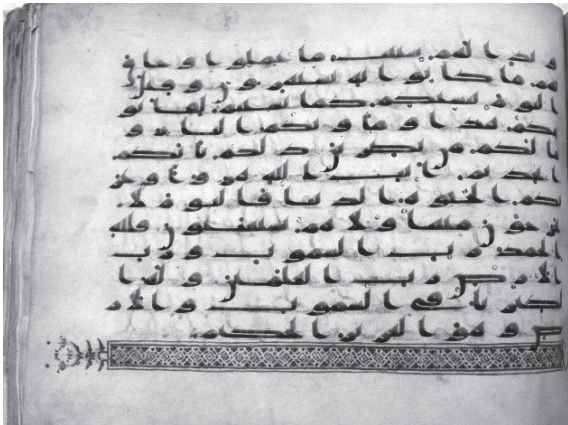 و بدا لهم سيات ما عملوا و حاق
بهم ما كانوا به يستهزون و قيل
اليوم ننسيكم كما نسيتم لقا يو
مكم هذا و ماويكم النار و
ما لكم من نصرين ذلكم بانكم
اتخذتم ايت الله هزوا و غر
تكم الحيوة الدنيا فاليوم لا
يخرجون منها و لا هم يستعتبون فلله
الحمد رب السموت و رب
الارض رب العلمين و له ا
لكبريا في السموت و الار
ض و هو العزيز الحكيم